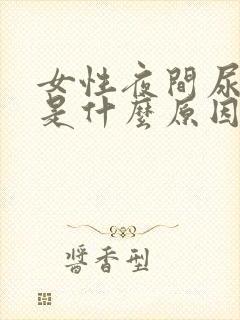 女性夜間尿
是什麼原因
醬香型